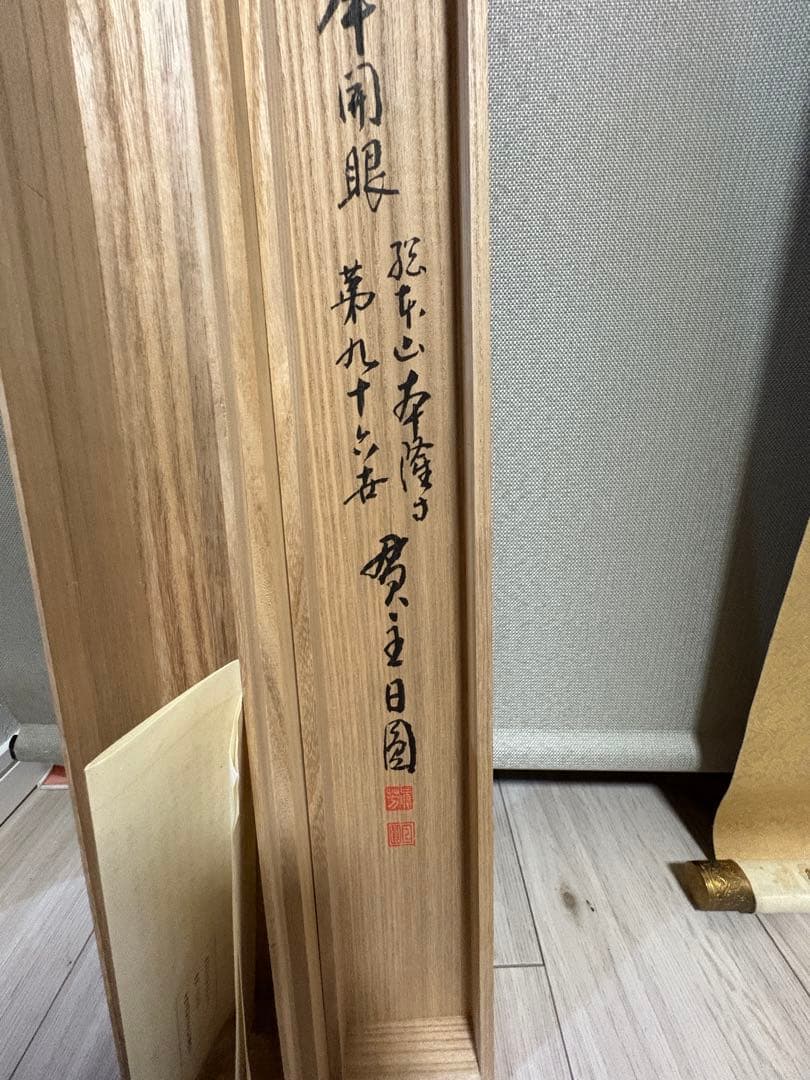 開眼
総本山本隆寺
第九十六世
貫主日圓